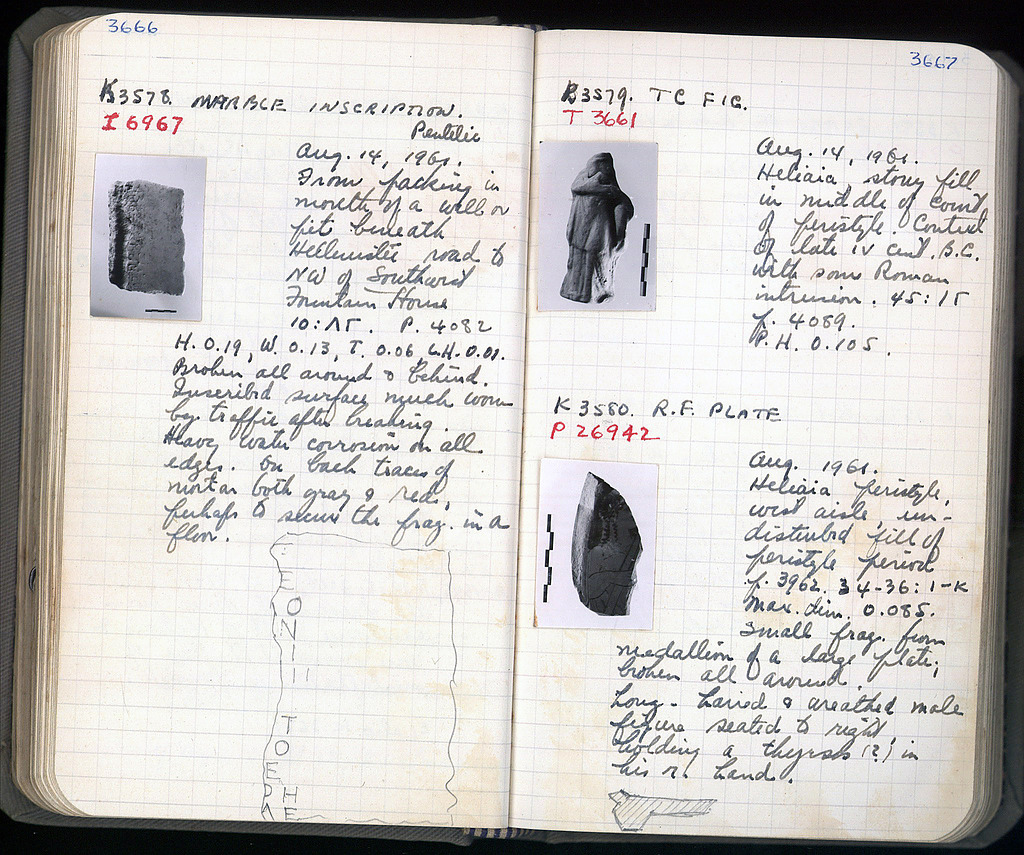 3666
K3578. MARBLE INSCRIPTION.
I 6967
Pentelic
Aug. 14, 1961.
From packing in
mouth of a well or
pit beneath
Hellenistic road to
NW of Southwest
Fountain House
P. 4082
H. 0.19, W. 0.13, T. 0.06, L.H. 0.01.
Broken all around & behind.
Inscribed surface much worn
by traffic after breaking.
Heavy water corrosion on all
edges. On back traces of
mortar both gray & red,
perhaps to secure the frag. in a
floor.
3667
K3579. TC FIG.
T 3661
Aug. 14, 1961.
Heliaia, stony fill
in middle of court
of peristyle. Context
of late IV cent. B.C.
with some Roman
intrusion.
p. 4089.
P.H. 0.105.
K 3580. R.F. PLATE
P 26942
Aug. 1961.
Heliaia peristyle,
west aisle, un-
disturbed fill of
peristyle period
p. 3962. 34-36: I-K
Max. dim. 0.085.
Small frag. from
medallion of a large plate;
broken all around.
Long-haired & wreathed male
figure seated to right
holding a thyrsos (?) in
his r. hand.